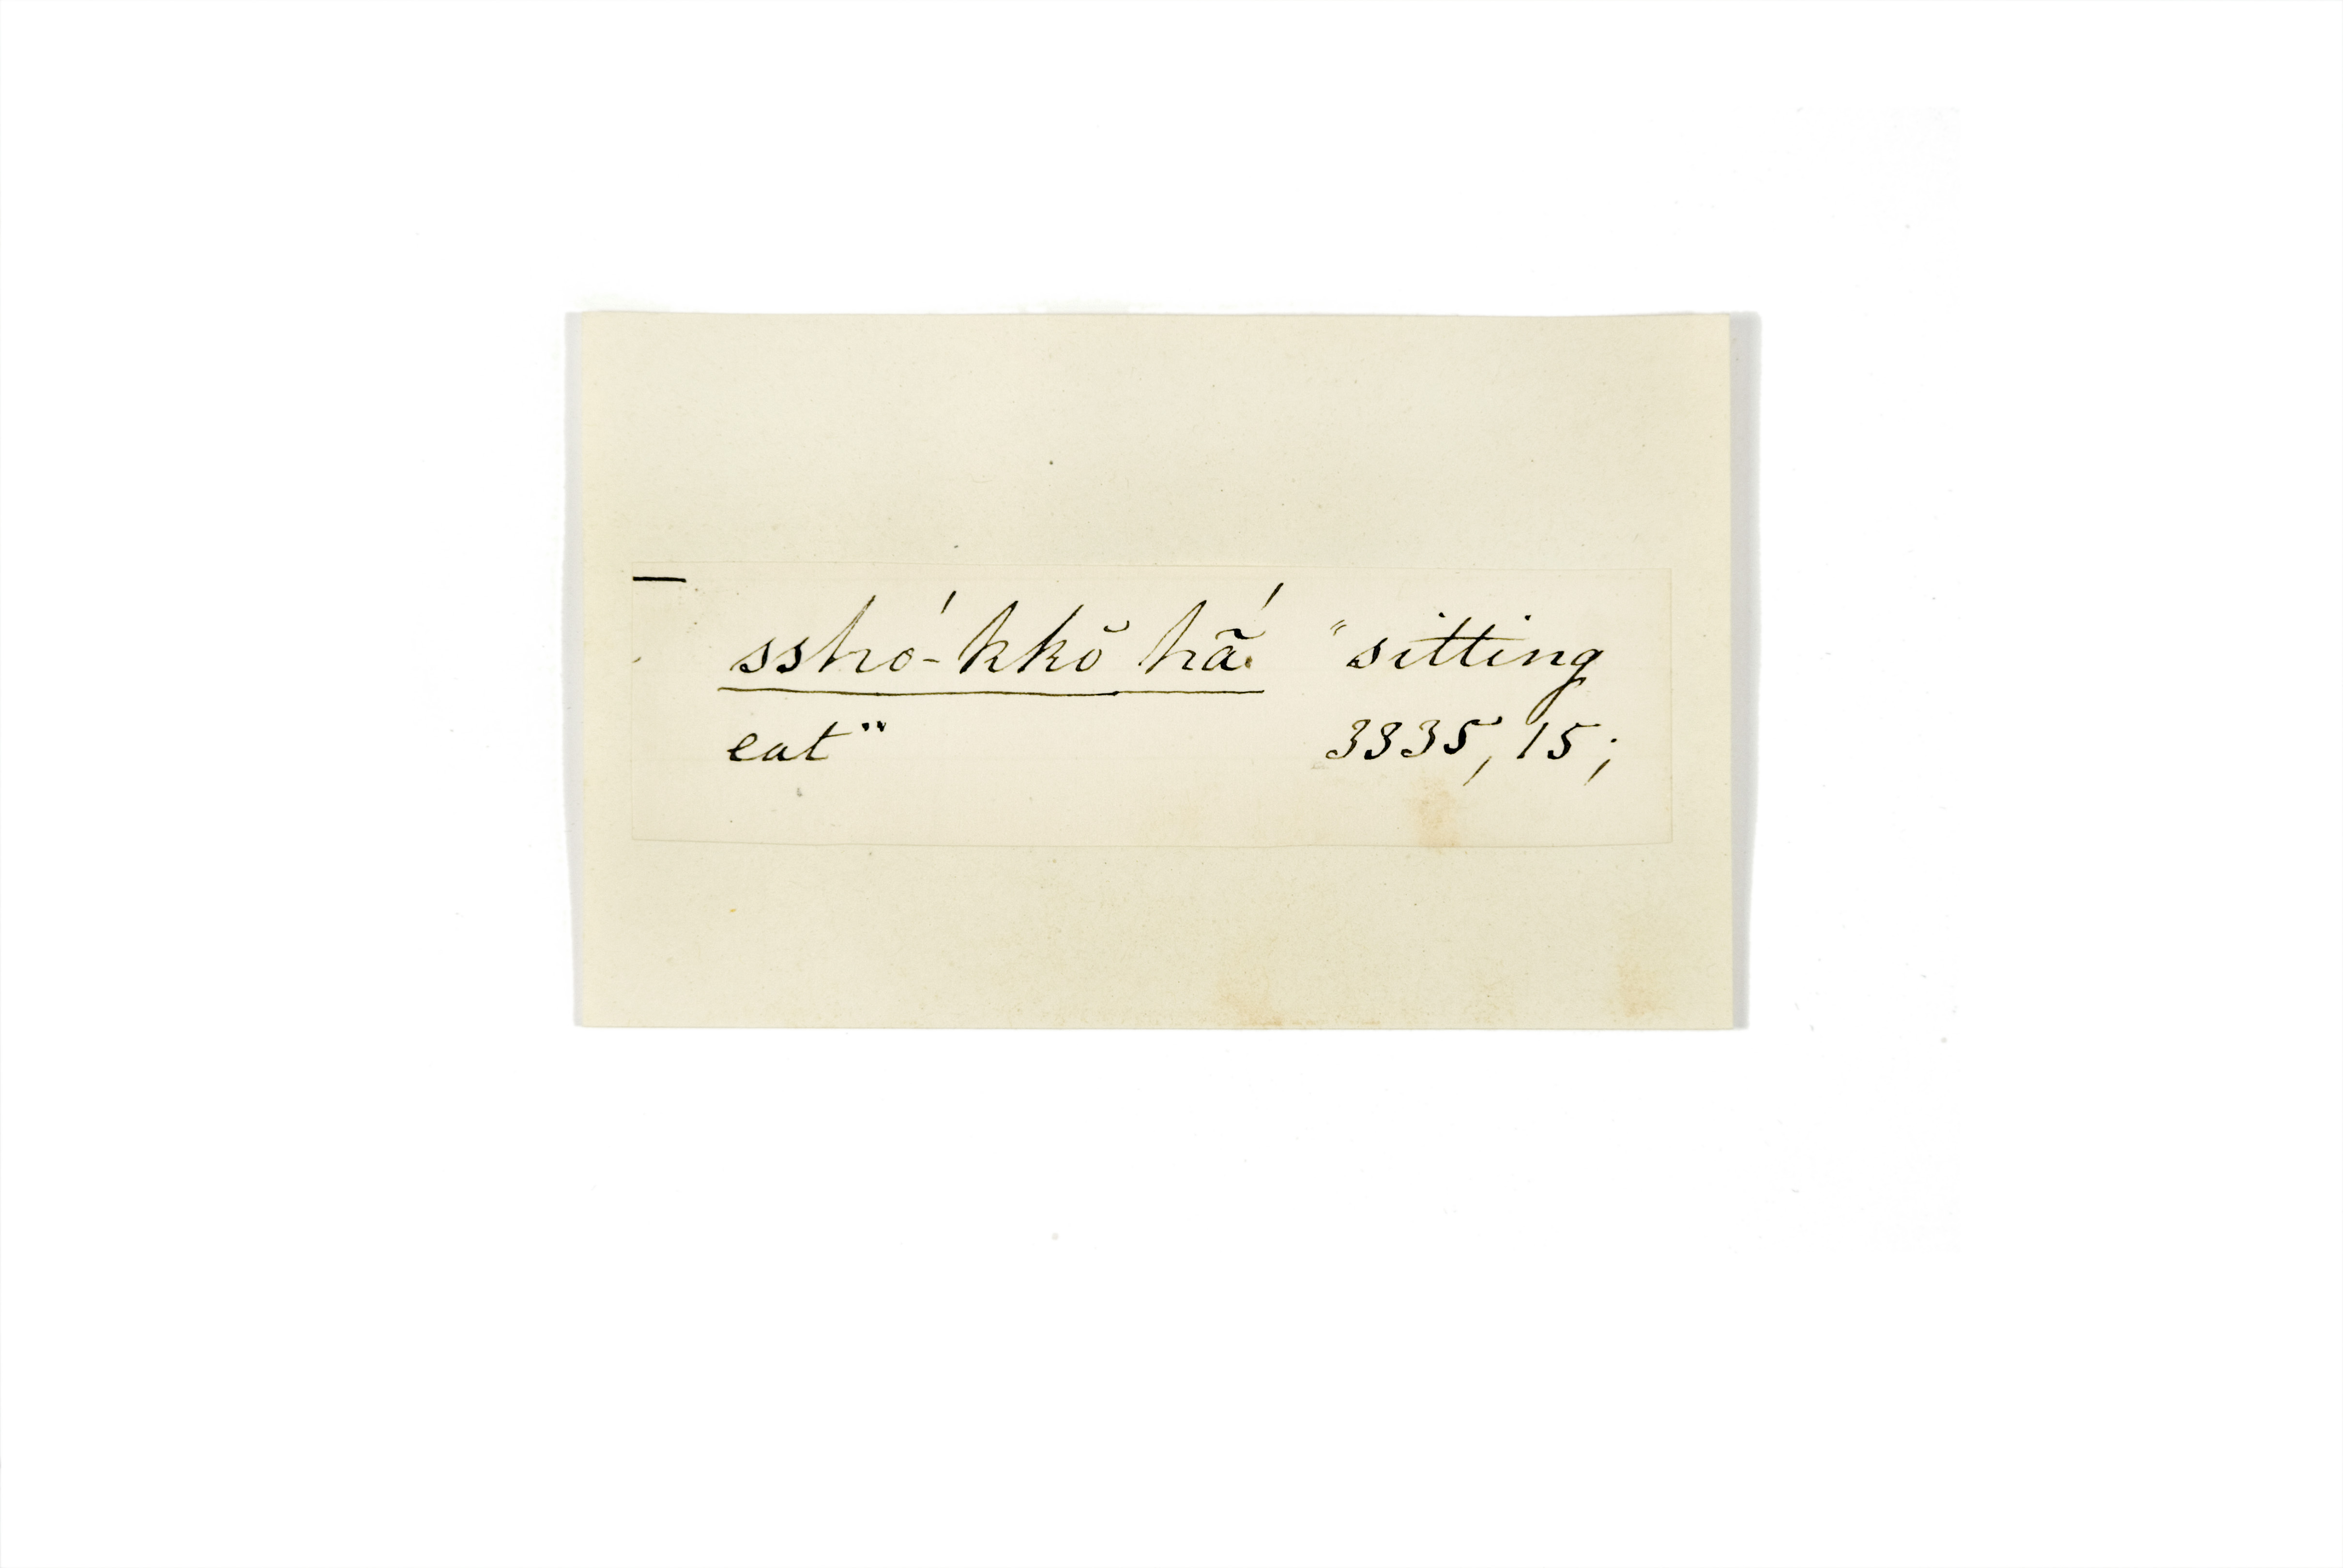 — sshó-kkŏ hã́ "sitting
eat" 3335, 15;